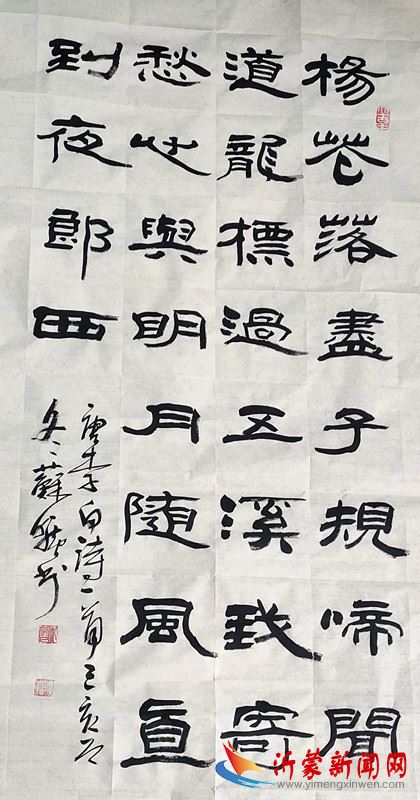 楊花落盡子規啼聞
道龍標過五溪我寄
愁心與明月隨風直
到夜郎西
唐李白詩一首己亥之
冬蘇書
沂蒙新闻网
www.yimengxinwen.com